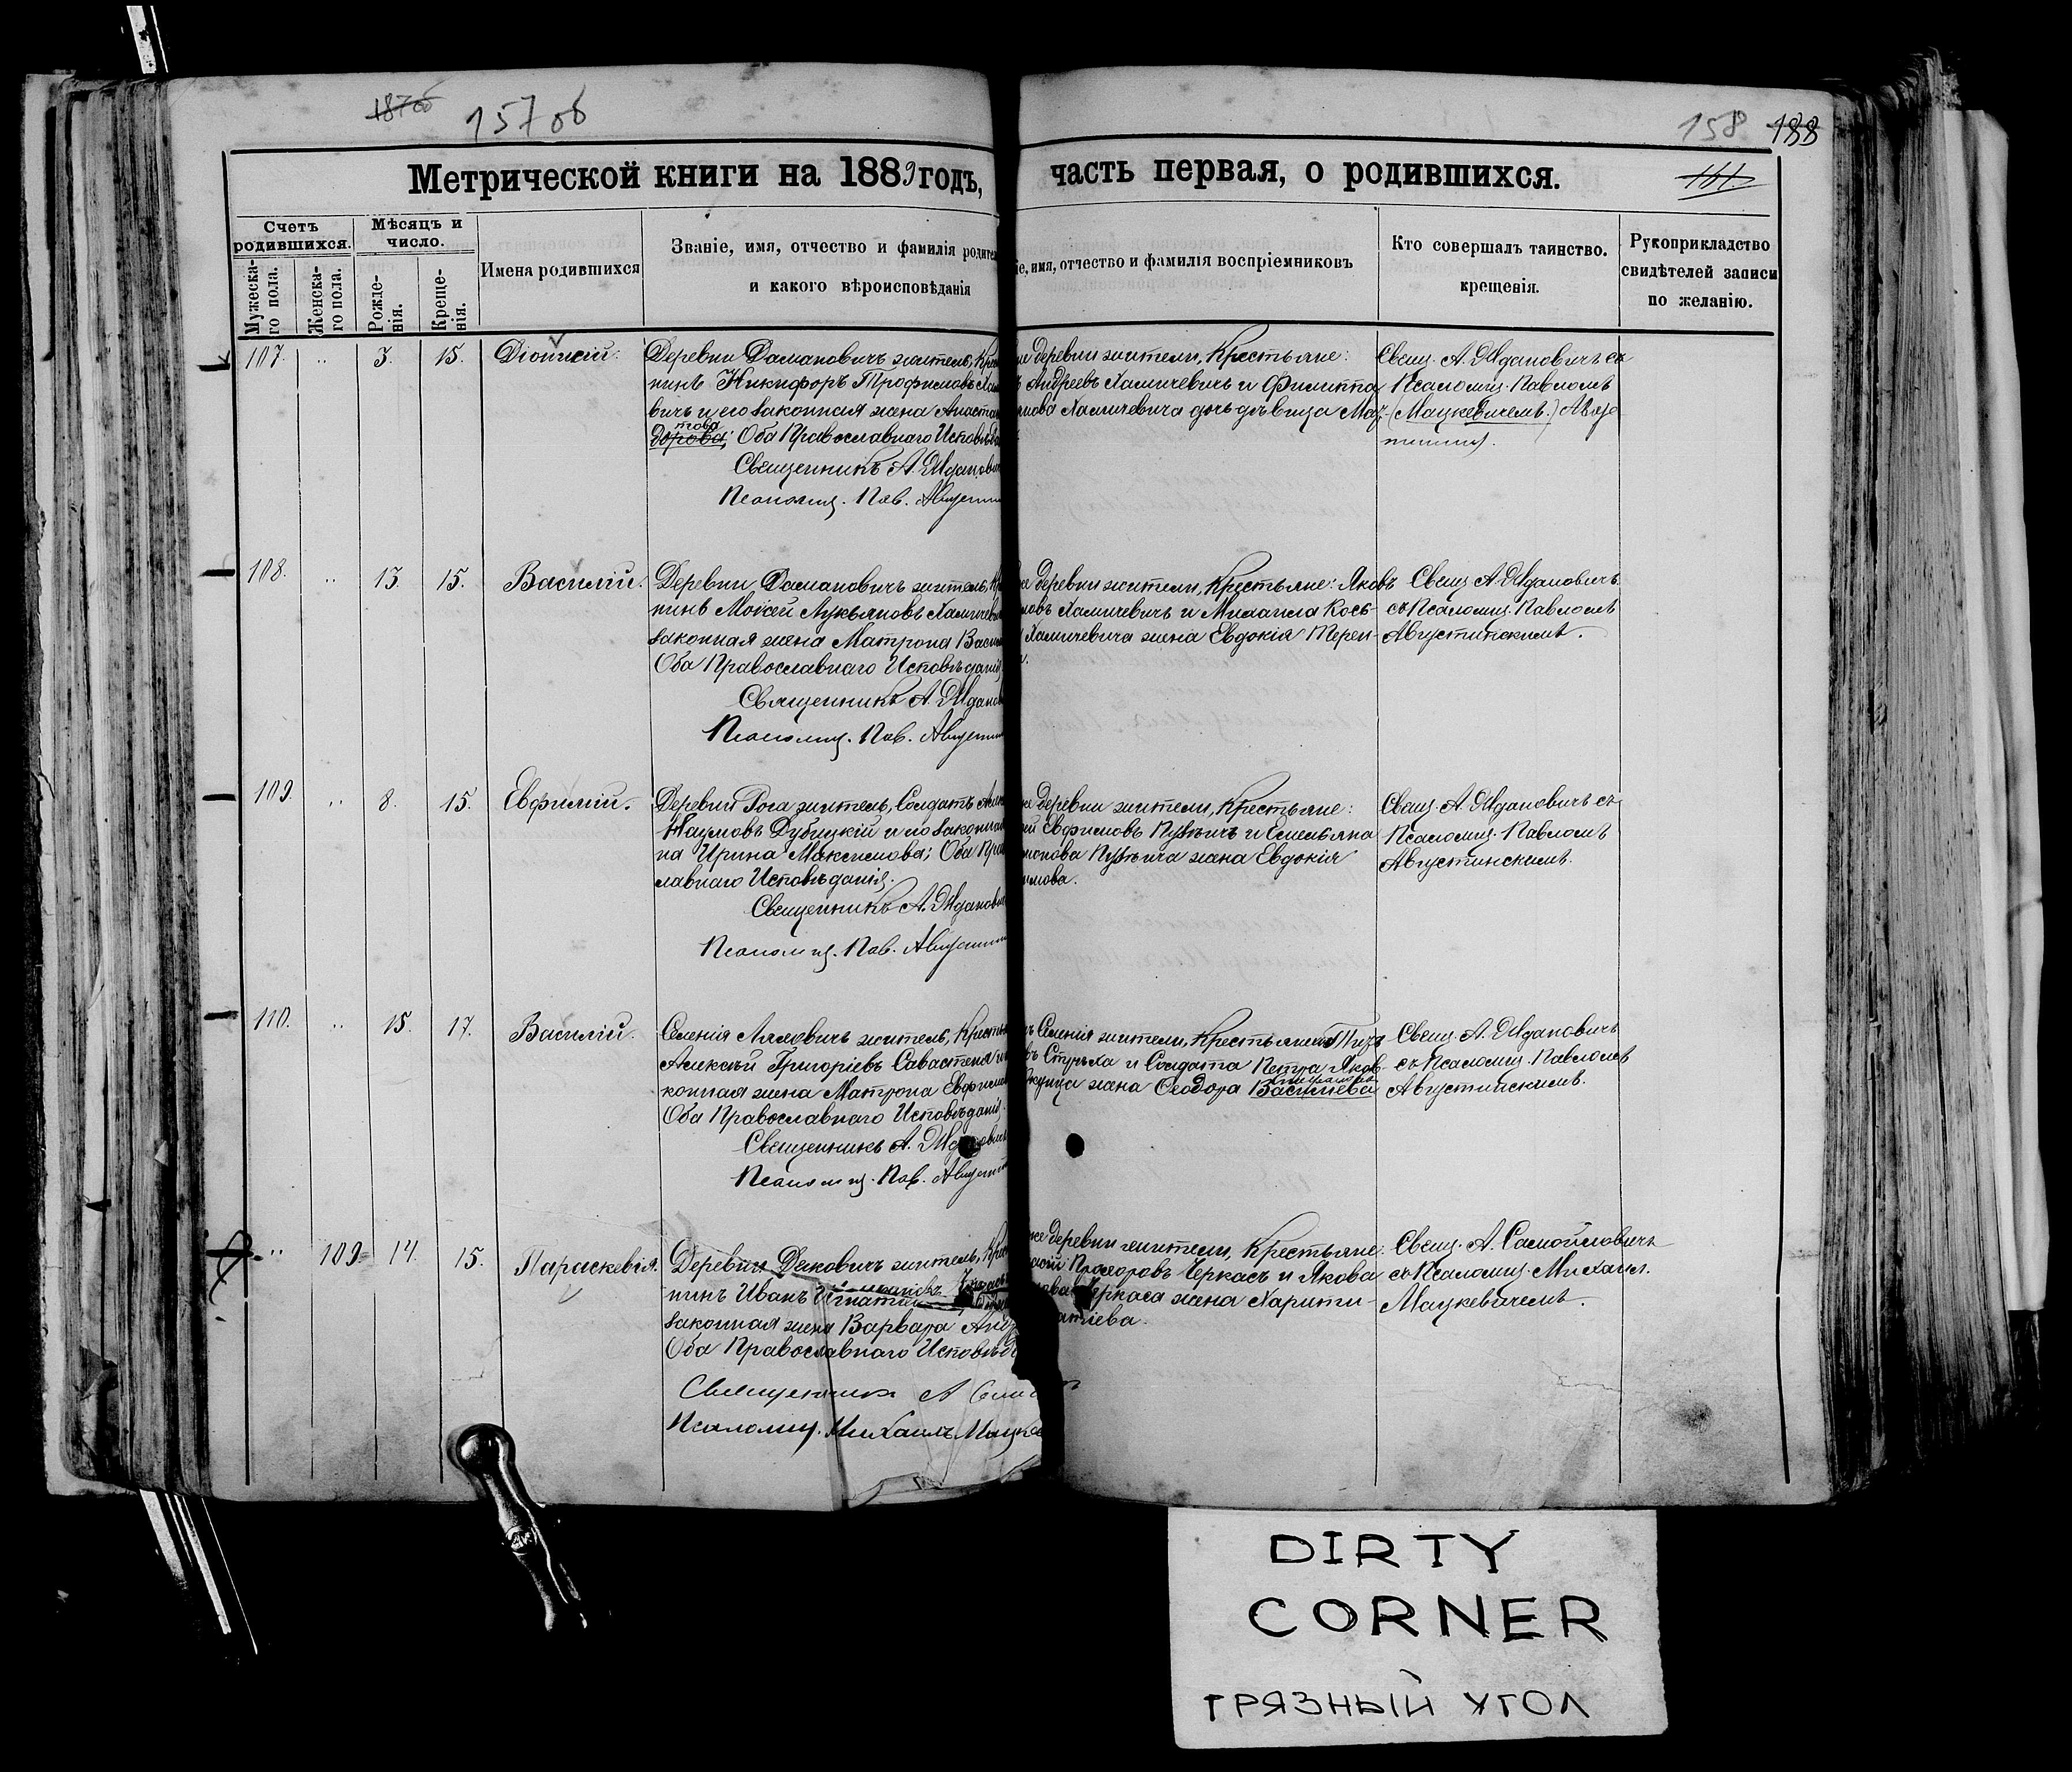 187об
157об
158 188
Метрической книги на 1889 годъ, часть первая, о родившихся.
161.
Счетъ родившихся.
Мужеска-го пола.
Женска-го пола.
Мѣсяцъ и число.
Рожде-нія.
Креще-нія.
Имена родившихся
Званіе, имя, отчество и фамилія родител
и какого вѣроисповѣданія
іе, имя, отчество и фамилія воспріемниковъ
Кто совершалъ таинство.
крещенія.
Рукоприкладство
свидѣтелей записи
по желанію.
107. „ 3. 15. Діонисій.
Деревни Домановичъ житель, Крес
нинъ Никифоръ Трофимовъ Хам
вичъ и его законная жена Анаста
това
дорова; Оба Православнаго Исповѣда
Священникъ А. Жданови
Псаломщ. Пав. Августин
не деревни жители, Крестьяне:
ъ Андреевъ Хамичевичъ и Филиппа
нова Хамичевича дочь дѣвица Мар-
Свящ. А. Ждановичъ съ
Псаломщ. Павломъ
(Мацкевичемъ.) Авгу-
108. „ 13. 15. Василій.
Деревни Домановичъ житель, Кре
нинъ Моисей Лукьяновъ Хамичеви
законная жена Матрона Васил
Оба Православнаго Исповѣданія
Священникъ А. Ждано
Псаломщ. Пав. Августин
же деревни жители, Крестьяне: Яковъ
мовъ Хамичевичъ и Михаила Козь-
Хамичевича жена Евдокія Терен-
Свящ. А. Ждановичъ
съ Псаломщ. Павломъ
Августинскимъ.
109. „ 8. 15. Евфимій.
Деревни Рога житель, Солдатъ
Наумовъ Дубицкій и его законная
на Ирина Максимова; Оба Прав
лавнаго Исповѣданія.
Священникъ А. Жданови
Псаломщ. Пав. Августин
же деревни жители, Крестьяне:
ей Евфимовъ и Емельяна
жена Евдокія
имова.
Свящ. А. Ждановичъ съ
Псаломщ. Павломъ
Августинскимъ.
110. „ 15. 17. Василій.
Селенія Лясковичъ житель, Кресть
Алексѣй Григоріевъ Савастена и
конная жена Матрона Евфим
Оба Православнаго Исповѣданія.
Священникъ А. Ждановичъ
Псаломщ. Пав. Августин
Селенія жители, Крестьянинъ
въ Стрѣха и Солдата Петра Яков-
жена Ѳеодора Васильева
Свящ. А. Ждановичъ
съ Псаломщ. Павломъ
Августинскимъ.
„ 109. 14. 15. Параскевія.
Деревни Дяковичъ житель, Крес
нинъ Иванъ Игнатіев
законная жена Варвара Андр
Оба Православнаго Исповѣда
Священникъ А Само
Псаломщ. Михаилъ Мацке
же деревни жители, Крестьяне:
Прохоровъ Черкасъ и Якова
Черкаса жена Харити-
атіева.
Свящ. А. Самойловичъ
съ Псаломщ. Михаил.
Мацкевичемъ.
DIRTY
CORNER
ГРЯЗНЫЙ УГОЛ